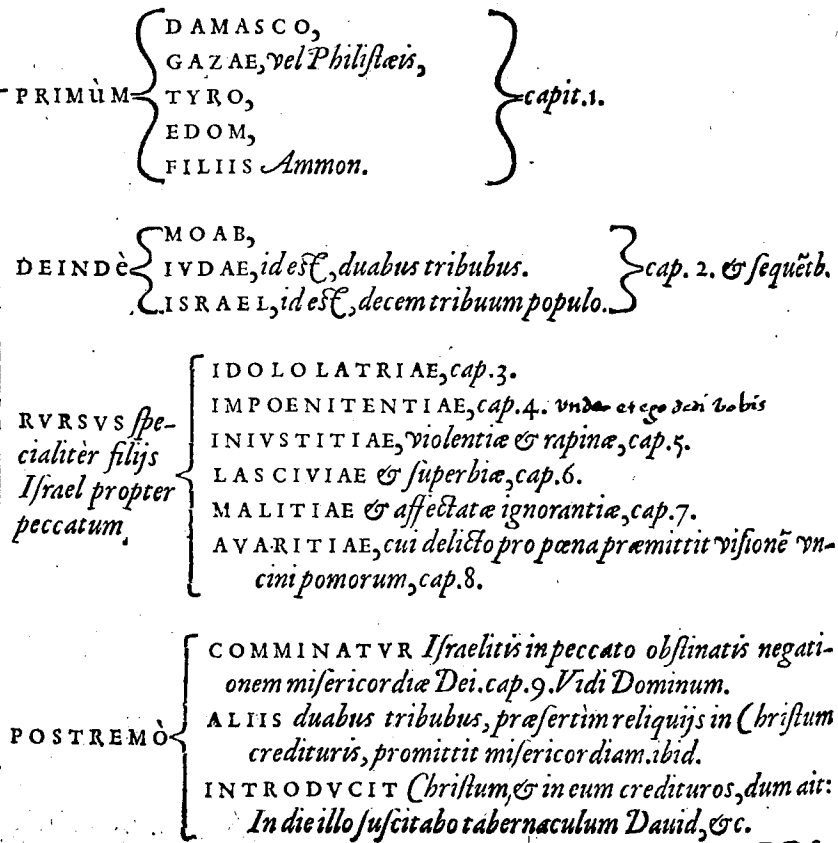 DAMASCO,
GAZAE, vel Philistæis,
PRIMùM TYRO, capit.1.
EDOM,
FILIIS Ammon.
MOAB,
DEINDè IVDAE, id est, duabus tribubus. cap. 2. & sequētb.
ISRAEL, id est, decem tribuum populo.
RVRSVS spe-
cialitèr filijs
Israel propter
peccatum
IDOLOLATRIAE, cap.3.
IMPOENITENTIAE, cap.4. vnde et ego dedi vobis
INIVSTITIAE, violentiæ & rapinæ, cap.5.
LASCIVIAE & superbiæ, cap.6.
MALITIAE & affectatæ ignorantiæ, cap.7.
AVARITIAE, cui delicto pro pœna præmittit visionē vn-
cini pomorum, cap.8.
POSTREMò
COMMINATVR Israelitis in peccato obstinatis negati-
onem misericordiæ Dei. cap.9. Vidi Dominum.
ALIIS duabus tribubus, præsertìm reliquijs in Christum
credituris, promittit misericordiam. ibid.
INTRODVCIT Christum, & in eum credituros, dum ait:
In die illo suscitabo tabernaculum Dauid, &c.